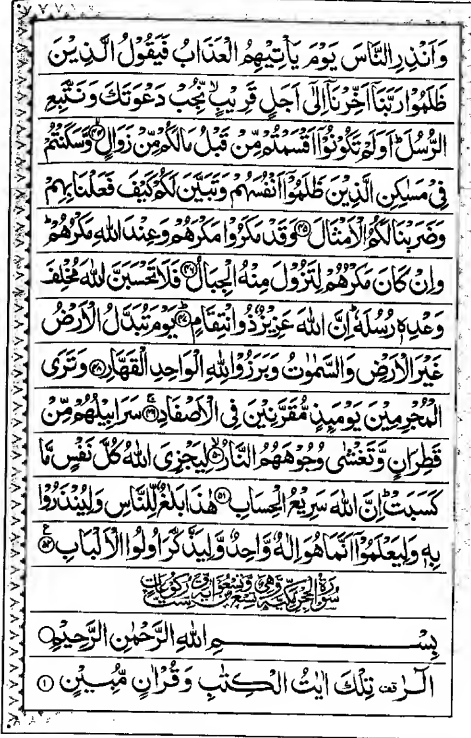 وَاَنْذِرِ النَّاسَ يَوْمَ يَاْتِيْهِمُ الْعَذَابُ فَيَقُوْلُ الَّذِيْنَ
ظَلَمُوْا رَبَّنَآ اَخِّرْنَآ اِلٰٓى اَجَلٍ قَرِيْبٍ ۙ نُّجِبْ دَعْوَتَكَ وَنَتَّبِعِ
الرُّسُلَ ؕ اَوَلَمْ تَكُوْنُوْٓا اَقْسَمْتُمْ مِّنْ قَبْلُ مَا لَكُمْ مِّنْ زَوَالٍ ۙ﴿۴۴﴾ وَّسَكَنْتُمْ
فِيْ مَسٰكِنِ الَّذِيْنَ ظَلَمُوْٓا اَنْفُسَهُمْ وَتَبَيَّنَ لَكُمْ كَيْفَ فَعَلْنَا بِهِمْ
وَضَرَبْنَا لَكُمُ الْاَمْثَالَ ﴿۴۵﴾ وَقَدْ مَكَرُوْا مَكْرَهُمْ وَعِنْدَ اللّٰهِ مَكْرُهُمْ ؕ
وَاِنْ كَانَ مَكْرُهُمْ لِتَزُوْلَ مِنْهُ الْجِبَالُ ﴿۴۶﴾ فَلَا تَحْسَبَنَّ اللّٰهَ مُخْلِفَ
وَعْدِهٖ رُسُلَهٗ ؕ اِنَّ اللّٰهَ عَزِيْزٌ ذُو انْتِقَامٍ ؕ﴿۴۷﴾ يَوْمَ تُبَدَّلُ الْاَرْضُ
غَيْرَ الْاَرْضِ وَالسَّمٰوٰتُ وَبَرَزُوْا لِلّٰهِ الْوَاحِدِ الْقَهَّارِ ﴿۴۸﴾ وَتَرَى
الْمُجْرِمِيْنَ يَوْمَىِٕذٍ مُّقَرَّنِيْنَ فِى الْاَصْفَادِ ۚ﴿۴۹﴾ سَرَابِيْلُهُمْ مِّنْ
قَطِرَانٍ وَّتَغْشٰى وُجُوْهَهُمُ النَّارُ ۙ﴿۵۰﴾ لِيَجْزِىَ اللّٰهُ كُلَّ نَفْسٍ مَّا
كَسَبَتْ ؕ اِنَّ اللّٰهَ سَرِيْعُ الْحِسَابِ ﴿۵۱﴾ هٰذَا بَلٰغٌ لِّلنَّاسِ وَلِيُنْذَرُوْا
بِهٖ وَلِيَعْلَمُوْٓا اَنَّمَا هُوَ اِلٰهٌ وَّاحِدٌ وَّلِيَذَّكَّرَ اُولُوا الْاَلْبَابِ ﴿۵۲﴾ ع
سُوْرَةُ الْحِجْرِ مَكِّيَّةٌ وَّهِيَ تِسْعٌ وَّتِسْعُوْنَ اٰيَةً
بِسْمِ اللّٰهِ الرَّحْمٰنِ الرَّحِيْمِ
الٓرٰ ۟ تِلْكَ اٰيٰتُ الْكِتٰبِ وَقُرْاٰنٍ مُّبِيْنٍ ﴿۱﴾